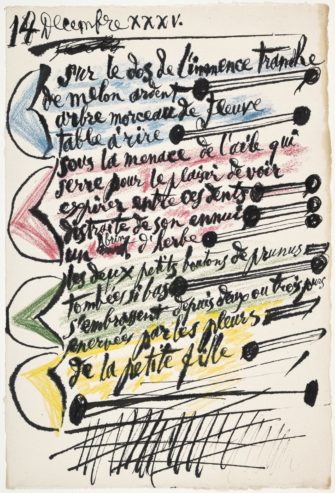 14 Decembre XXXV.
sur le dos de l'immence tranche
de melon ardent
arbre morceau de fleuve
table à rire
sous la menace de l'aile qui
serre pour le plaisir de voir
expirer entre ces dents
distraite de son ennui
un brin di herbe
les deux petits boutons de prunus
tombées si bas
s'embrassent depuis deux ou trois jours
énervées par les pleurs
de la petite fille